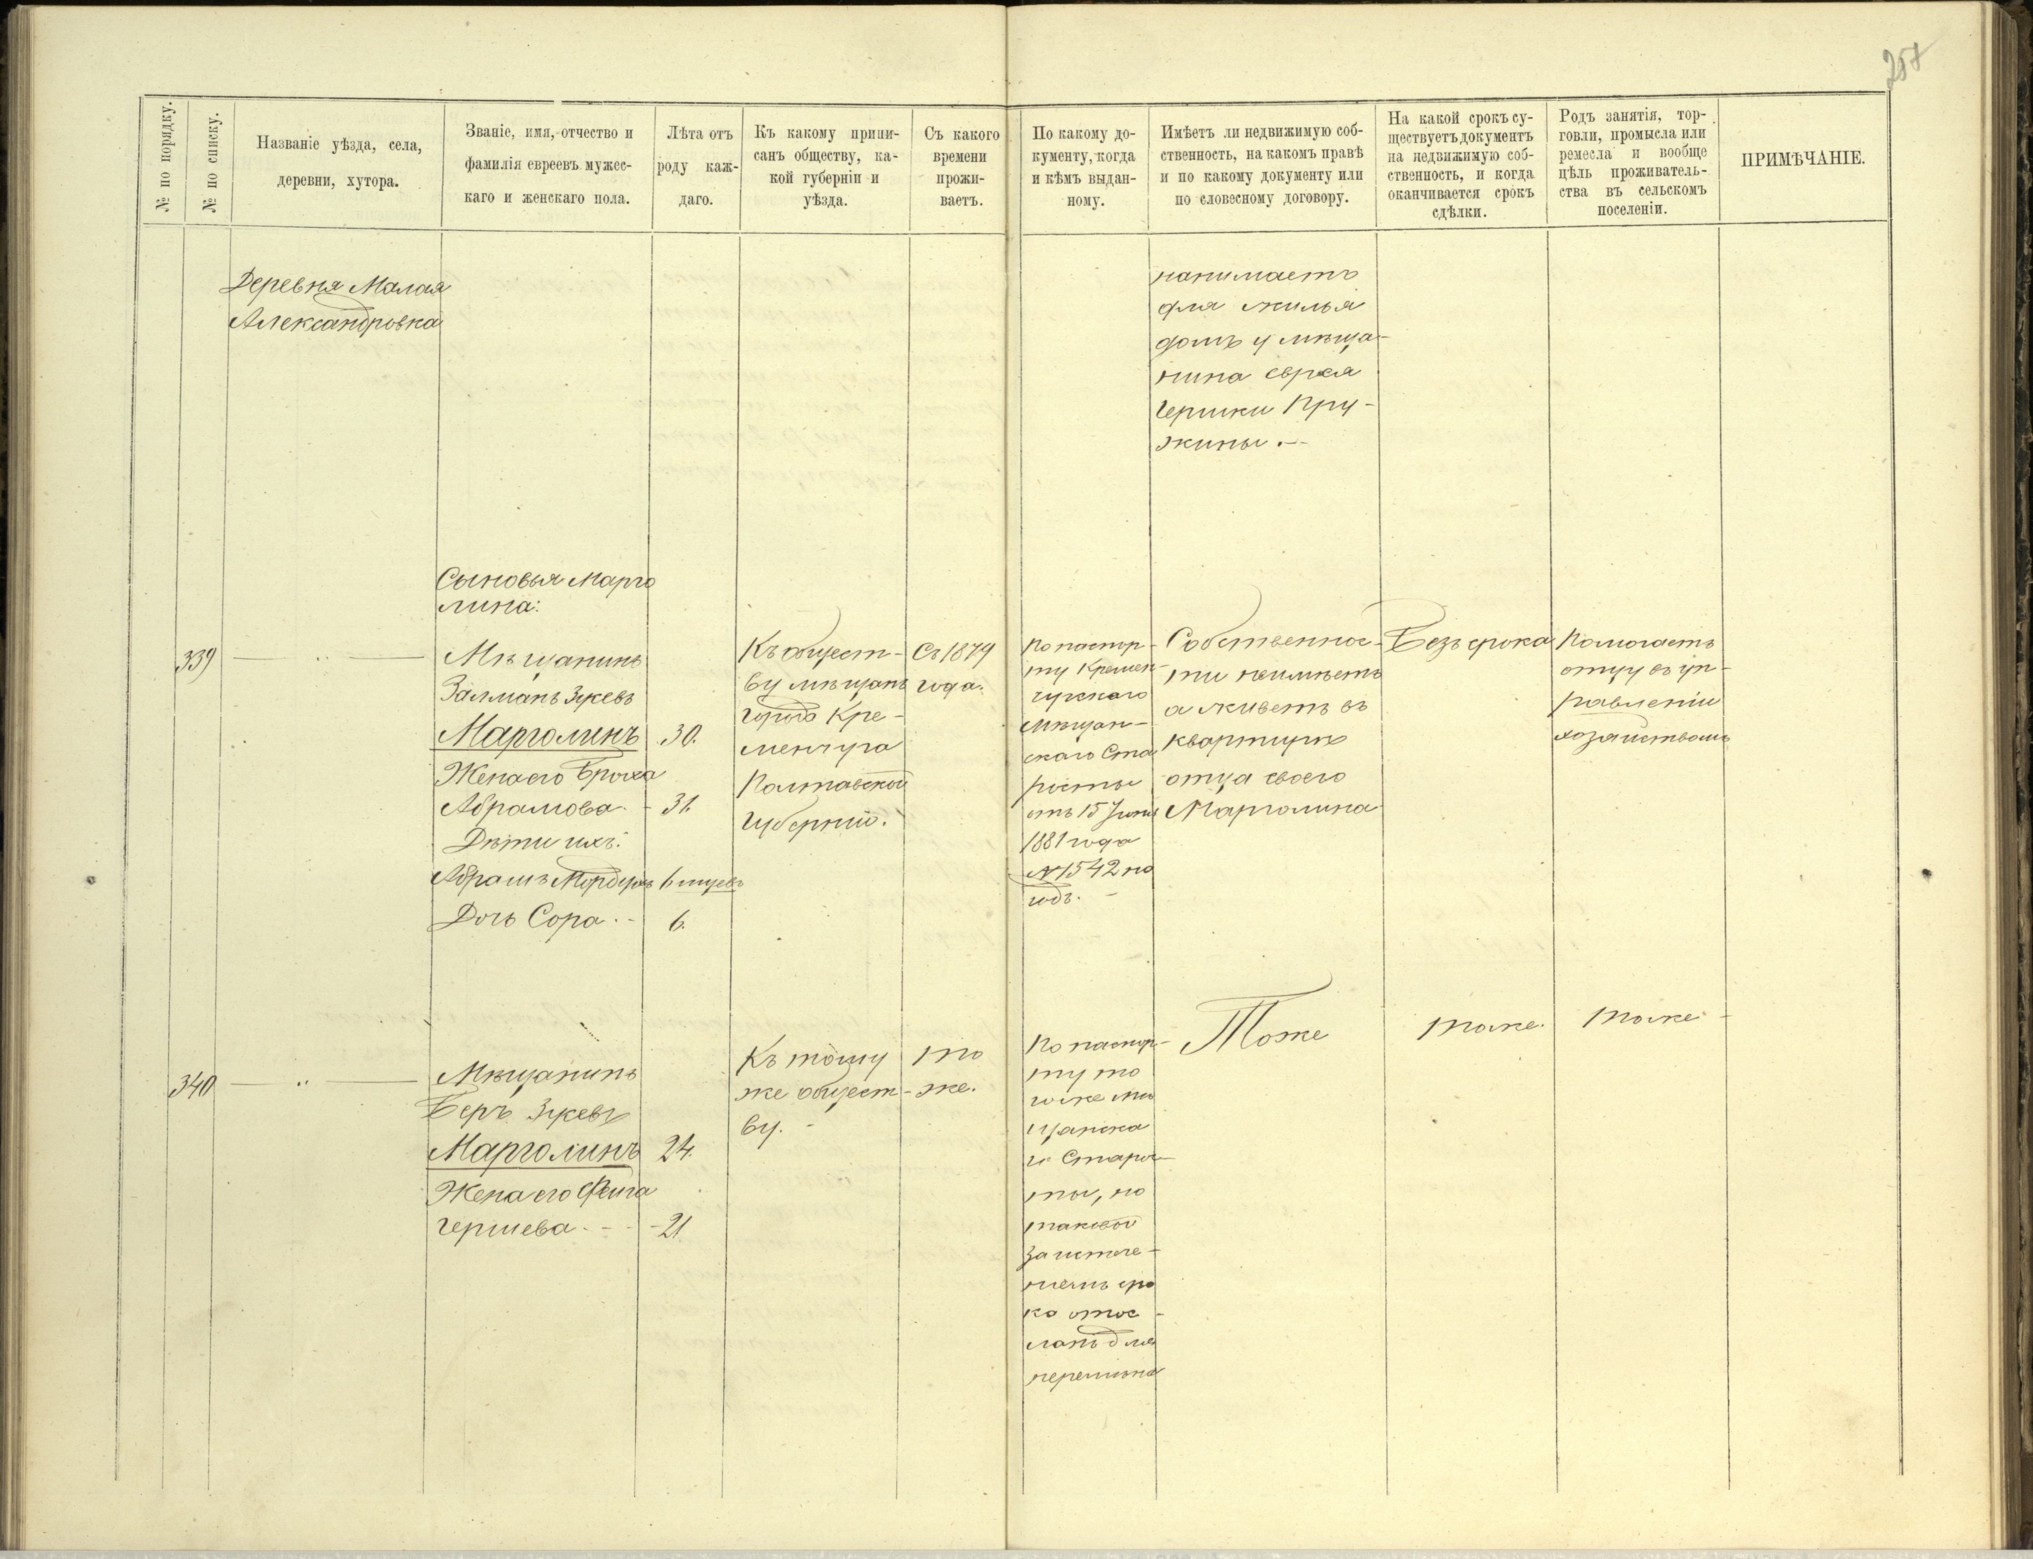 257
№ по порядку.
№ по списку.
Названіе уѣзда, села,
деревни, хутора.
Званіе, имя, отчество и
фамилія евреевъ мужес-
каго и женскаго пола.
Лѣта отъ
роду каж-
даго.
Къ какому припи-
санъ обществу, ка-
кой губерніи и
уѣзда.
Съ какого
времени
прожи-
ваетъ.
По какому до-
кументу, когда
и кѣмъ выдан-
ному.
Имѣетъ ли недвижимую соб-
ственность, на какомъ правѣ
и по какому документу или
по словесному договору.
На какой срокъ су-
ществуетъ документъ
на недвижимую соб-
ственность, и когда
оканчивается срокъ
сдѣлки.
Родъ занятія, тор-
говли, промысла или
ремесла и вообще
цѣль проживатель-
ства въ сельскомъ
поселеніи.
ПРИМѢЧАНІЕ.
Деревня Малая
Александровка
нанимаетъ
для жилья
домъ у мѣща-
нина еврея
Гершки Пру-
жины.
Сыновья Марго
лина:
339
Мѣщанинъ
Залманъ Зусевъ
Марголинъ 30.
Жена его Броха
Абрамова 31.
Дѣти ихъ:
Абрамъ Мордухъ 6 мѣсяцевъ
Дочь Сора 6.
Къ общест-
ву мѣщанъ
города Кре-
менчуга
Полтавской
Губерніи.
Съ 1879
года.
По паспор-
ту Кремен-
чугскаго
Мѣщан-
скаго Ста
росты
отъ 15 Іюня
1881 года
№ 1542 на
годъ.
Собственнос-
ти неимѣетъ
а живетъ въ
квартирѣ
отца своего
Марголина
Безъ срока
Помогаетъ
отцу въ уп-
равленіи
хозяйствомъ
340
Мѣщанинъ
Беръ Зусевъ
Марголинъ 24.
Жена его Фейга
Гершева 21
Къ тому
же общест-
ву.
то
же.
По паспор-
ту то
гоже мѣ
щанска
го Старос-
ты, но
таковой
за истече-
ніемъ сро
ка отос-
ланъ для
перемѣны
Тоже
тоже.
тоже